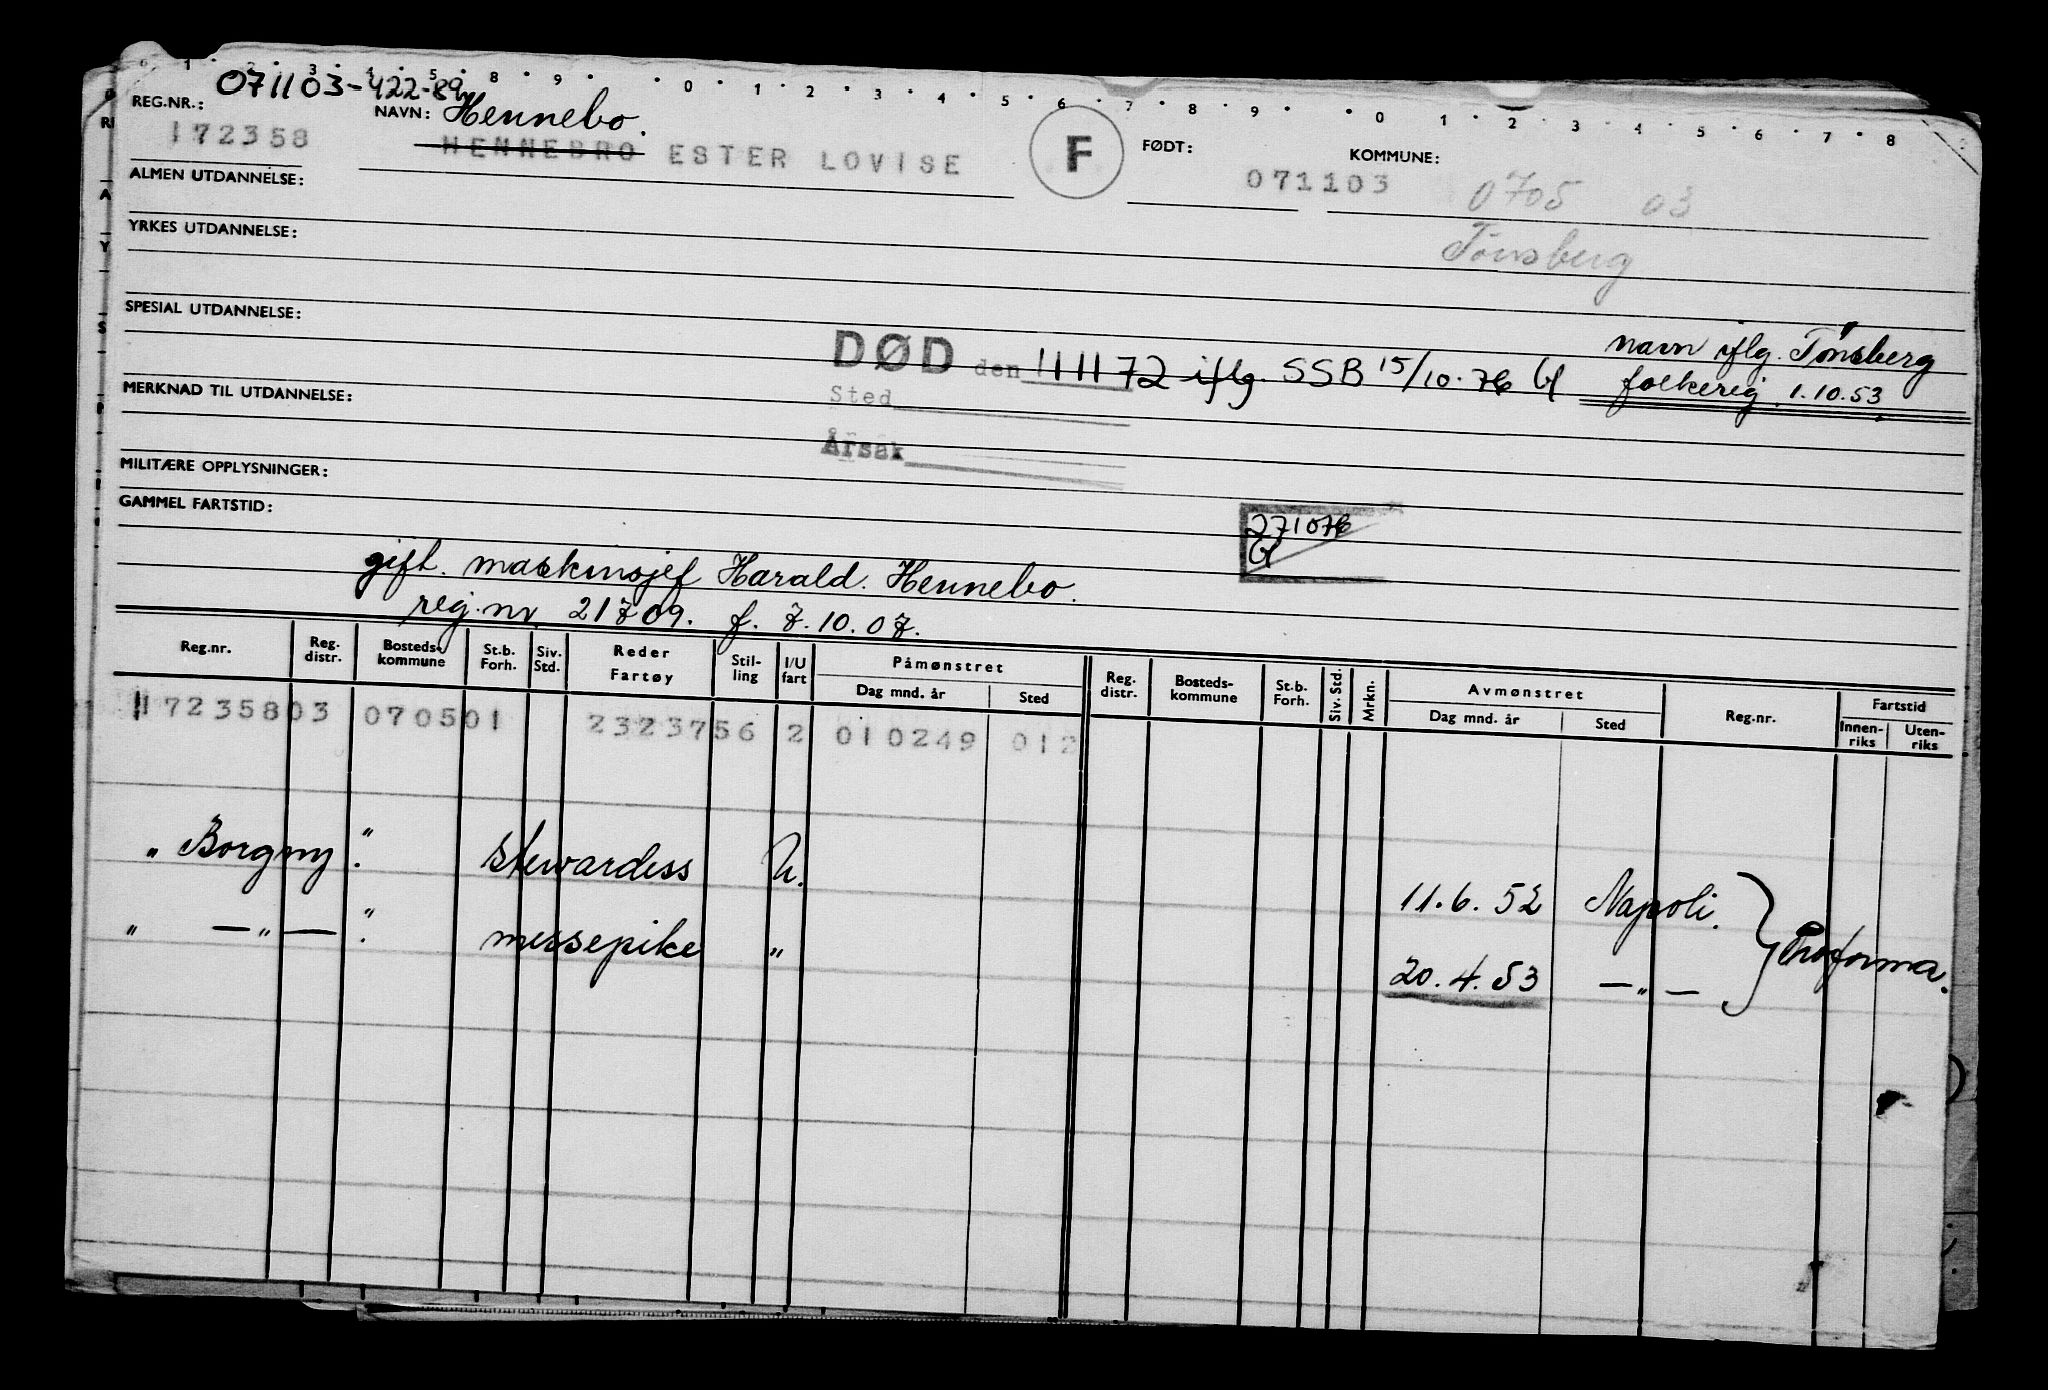 071103-422-89
1 2 3 4 5 8 9 0 1 2 3 4 5 6 7 8 9 0 1 2 3 4 5 6 7 8
REG.NR.: NAVN: Hennebo. FØDT: KOMMUNE:
172358 HENNEBRO ESTER LOVISE F 071103 0705 03
Tønsberg
ALMEN UTDANNELSE:
YRKES UTDANNELSE:
SPESIAL UTDANNELSE:
DØD den 111172 iflg. SSB 15/10.76
navn iflg. Tønsberg
folkereg. 1.10.53
Sted
MERKNAD TIL UTDANNELSE:
Årsak
MILITÆRE OPPLYSNINGER:
GAMMEL FARTSTID:
271076
gift. maskinsjef Harald. Hennebo.
reg.nr. 21709. f. 7.10.07.
Reg.nr. Reg. distr. Bosteds- kommune St.b. Forh. Siv. Std. Reder Fartøy Stil- ling I/U fart Påmønstret Dag mnd. år Sted Reg. distr. Bosteds- kommune St.b. Forh. Siv. Std. Mrkn. Avmønstret Dag mnd. år Sted Reg.nr. Fartstid Innen- riks Uten- riks
17235803 070501 2323756 2 010249 012
" Borgny " . stewardess U. 11.6.52 Napoli. } Proforma.
" — " — " . messepike " 20.4.53 — " —